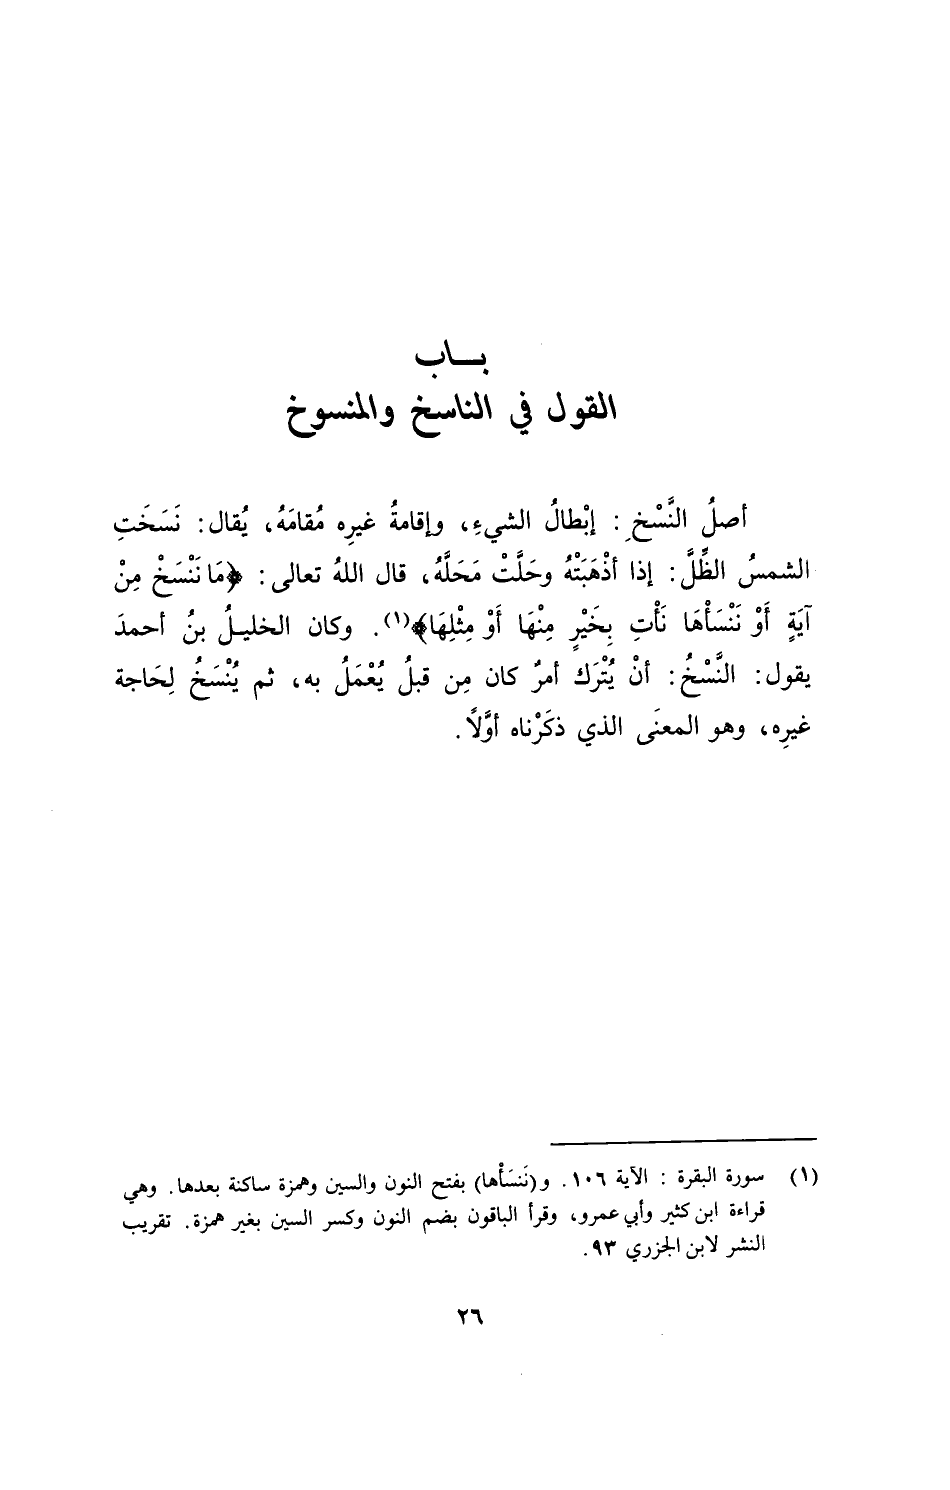 بــاب
القول في الناسخ والمنسوخ
أصلُ النَّسْخِ : إبْطالُ الشيءِ، وإقامةُ غيرِه مُقامَهُ، يُقال: نَسَخَتِ
الشمسُ الظِّلَّ: إذا أذْهَبَتْهُ وحَلَّتْ مَحَلَّهُ، قال اللهُ تعالى: ﴿مَا نَنْسَخْ مِنْ
آيَةٍ أَوْ نَنْسَأْهَا نَأْتِ بِخَيْرٍ مِنْهَا أَوْ مِثْلِهَا﴾(١). وكان الخليـلُ بنُ أحمدَ
يقول: النَّسْخُ: أنْ يُتْرَك أمرٌ كان مِن قبلُ يُعْمَلُ به، ثم يُنْسَخُ لِحَاجة
غيرِه، وهو المعنَى الذي ذكَرْناه أوَّلاً.
(١) سورة البقرة : الآية ١٠٦. و(نَنسَأْها) بفتح النون والسين وهمزة ساكنة بعدها. وهي
قراءة ابن كثير وأبي عمرو، وقرأ الباقون بضم النون وكسر السين بغير همزة. تقريب
النشر لابن الجزري ٩٣.
٢٦